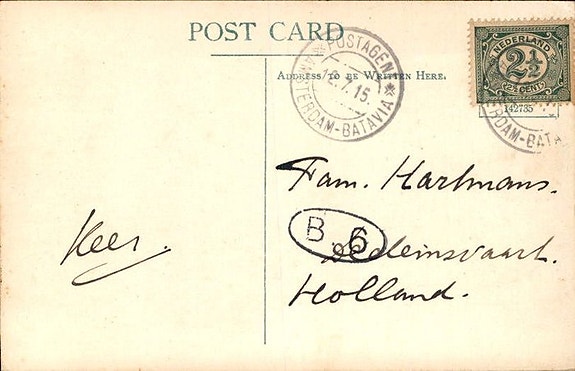 POST CARD
POSTAGENT
AMSTERDAM-BATAVIA
12.7.15.
ADDRESS TO BE WRITTEN HERE.
NEDERLAND
2½
2½ CENT
142735
RDAM-BATA
Fam. Hartmans.
B 6
Dedemsvaart.
Holland.
Kees.